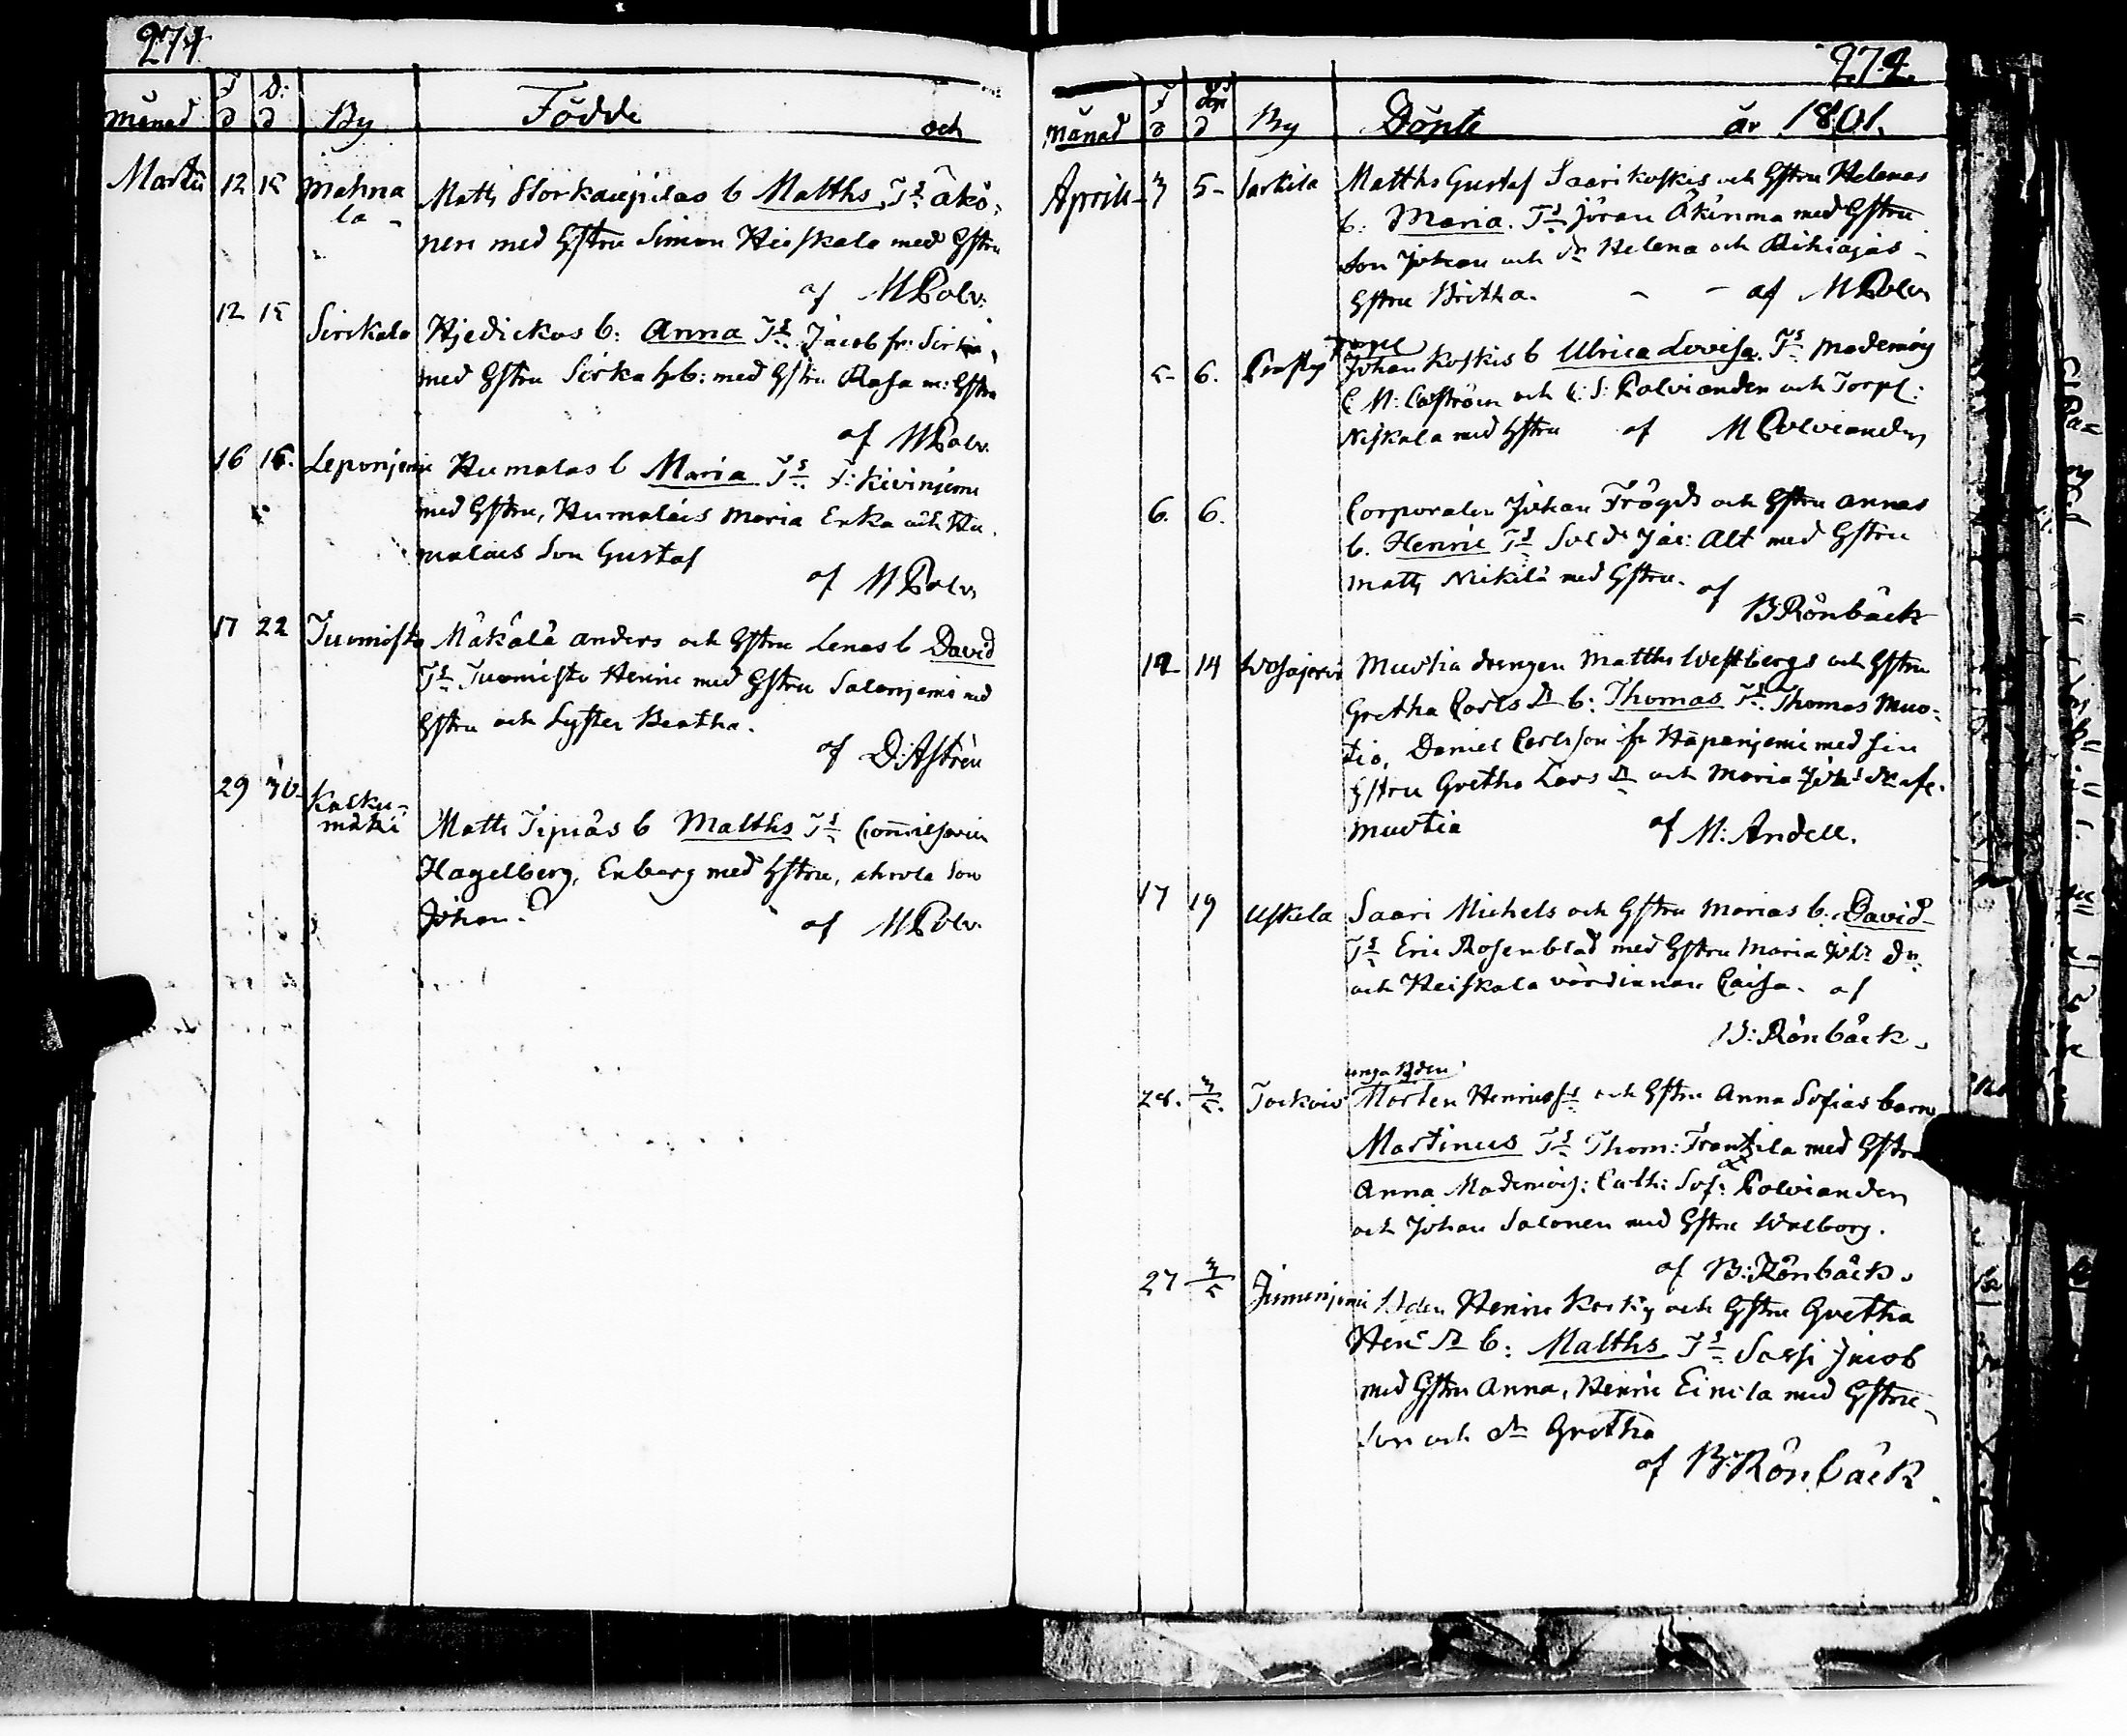 274
månad d d By Födde och
Martii 12 15 Mahnala Matts Storkaupilas b Matths Ts Åkö-
nen med hstru Simon Heiskala med hstru
af M Polv:
12 15 Sirckala Hjedickos b: Anna Ts Jacob fr:
med hstru Sirka med hstru Rasa m: hstru
af M Polv.
16 16. Leponjemi Humalas b Maria Ts Kivinjemi
med hstru, Humalais Maria Erka och Hu-
malais Son Gustaf
af M Polv.
17 22 Tuomisto Mäkälä Anders och hstru Lenas b David
Ts Tuomisto Henric med hstru Salonjemi med
hstru och Syster Beatha.
af D: Aströn
29 30 Kalku-
mäki Matts Tipiäs b Matths Ts Commissarien
Hagelberg, Enberg med hstru, Son
Johan.
af M Polv.
274.
månad d d By Döpte år 1801.
Aprill 3 5 Sarkila Matths Gustaf Saarikoskis och hstru Helenas
b: Maria. Ts Jöran Äkinma med hstru
Son Johan och dr Helena och
hstru Britha. af M Polv
5 6. Johan Koskis b Ulrica Lovisa. Ts Mademois
C. M: Caström och C: S: Polviander och Torp:
Niskala med hstru af M Polviander
6. 6. Corporalen Johan Frögds och hstru Annas
b. Henric Ts Sold: Jac: Alt med hstru
Matts Nickilä med hstru. af
B Rönbäck
12 14 Wosajervi Muotia drengen Matths Westbergs och hstru
Gretha Carls Dr b: Thomas Ts Thomas Muo-
tio, Daniel Carlsson fr Hapanjemi med sin
hstru Gretha Lars Dr och Maria
Muotia af M: Andell.
17 19 Uskela Saari Michels och hstru Marias b. David
Ts Eric Rosenblad med hstru Maria Joh: Dr
och Heiskala värdinnan Caisa. af
B: Rönbäck.
unga
28. 3/5. Morten Henricss och hstru Anna Sofias barn
Martinus Ts Thom: Frantzila med hstru
Anna Mademois: Cath: Sof: Polviander
och Johan Salonen med hstru Walborg.
af B: Rönbäck.
27 3/5 Jumenjemi Henric och hstru Gretha
Henr Dr b: Matths Ts Sassi Jacob
med hstru Anna, Henric Einila med hstru
Son och dr Gretha
af B: Rönbäck.